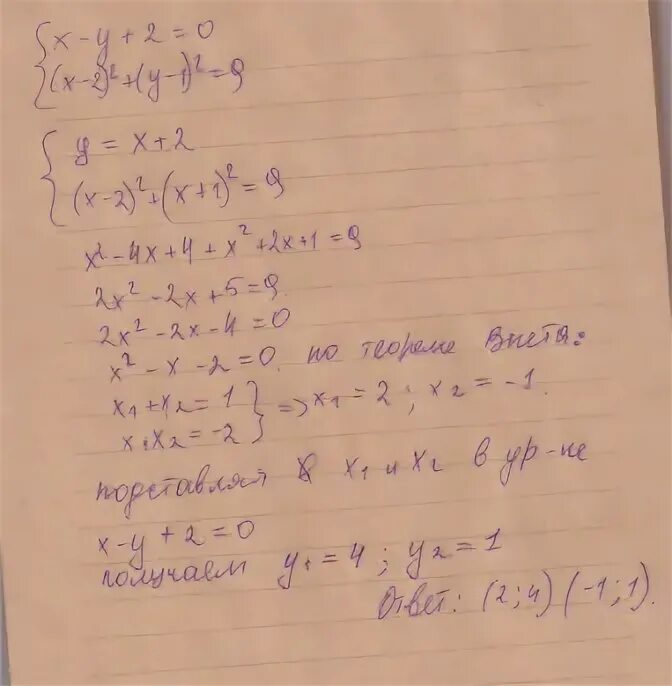 x - y + 2 = 0
(x-2)² + (y-1)² = 9
y = x + 2
(x-2)² + (x+1)² = 9
x² - 4x + 4 + x² + 2x + 1 = 9
2x² - 2x + 5 = 9
2x² - 2x - 4 = 0
x² - x - 2 = 0 по теореме Виета:
x₁ + x₂ = 1
x₁x₂ = -2 } => x₁ = 2 ; x₂ = -1
подставляя x₁ и x₂ в ур-не
x - y + 2 = 0
получаем y₁ = 4 ; y₂ = 1
Ответ: (2;4) (-1;1).